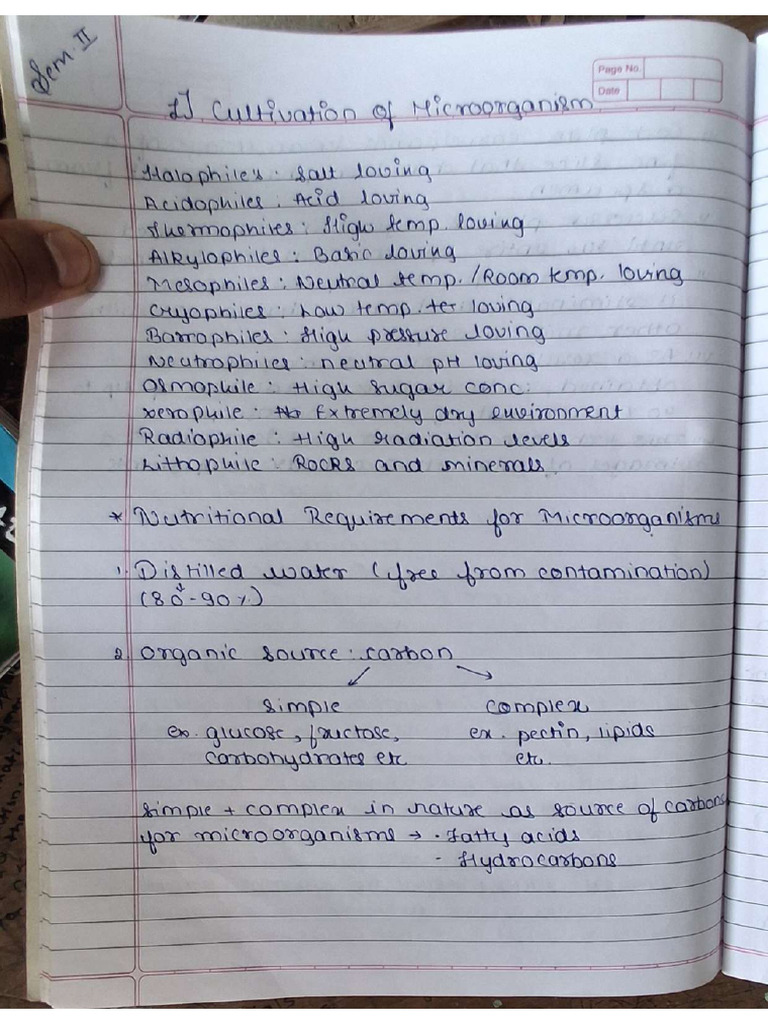 Sem. II
Page No.
Date
1] Cultivation of Microorganism
Halophiles : Salt loving
Acidophiles : Acid loving
Thermophiles : High temp. loving
Alkylophiles : Basic loving
Mesophiles : Neutral temp. / Room temp. loving
Cryophiles : Low temp. loving
Barrophiles : High pressure loving
Neutrophiles : neutral pH loving
Osmophile : High Sugar conc.
xerophile : Extremely dry environment
Radiophile : High radiation levels
Lithophile : Rocks and minerals
* Nutritional Requirements for Microorganisms
1. Distilled water (free from contamination)
(80-90%)
2. Organic source : carbon
simple complex
ex. glucose, fructose, ex. pectin, lipids
carbohydrates etc etc.
Simple + complex in nature as source of carbons
for microorganisms → · Fatty acids
- Hydrocarbons